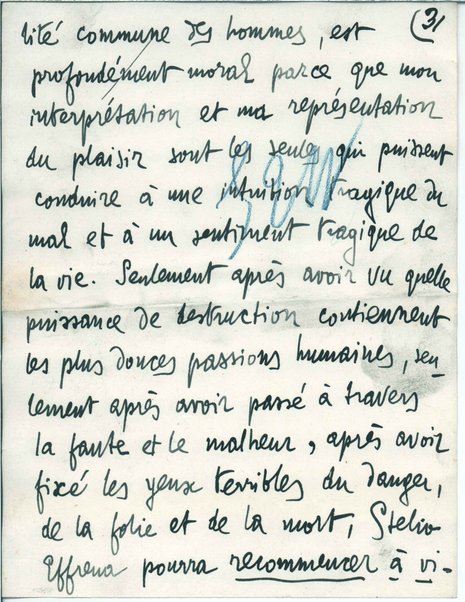 (3)
lité commune des hommes, est
profondément moral parce que mon
interprétation et ma représentation
du plaisir sont les seules qui puissent
conduire à une intuition tragique du
mal et à un sentiment tragique de
la vie. Seulement après avoir vu quelle
puissance de destruction contiennent
les plus douces passions humaines, seu-
lement après avoir passé à travers
la faute et le malheur, après avoir
fixé les yeux terribles du danger,
de la folie et de la mort, Stelio
Effrena pourra recommencer à vi-